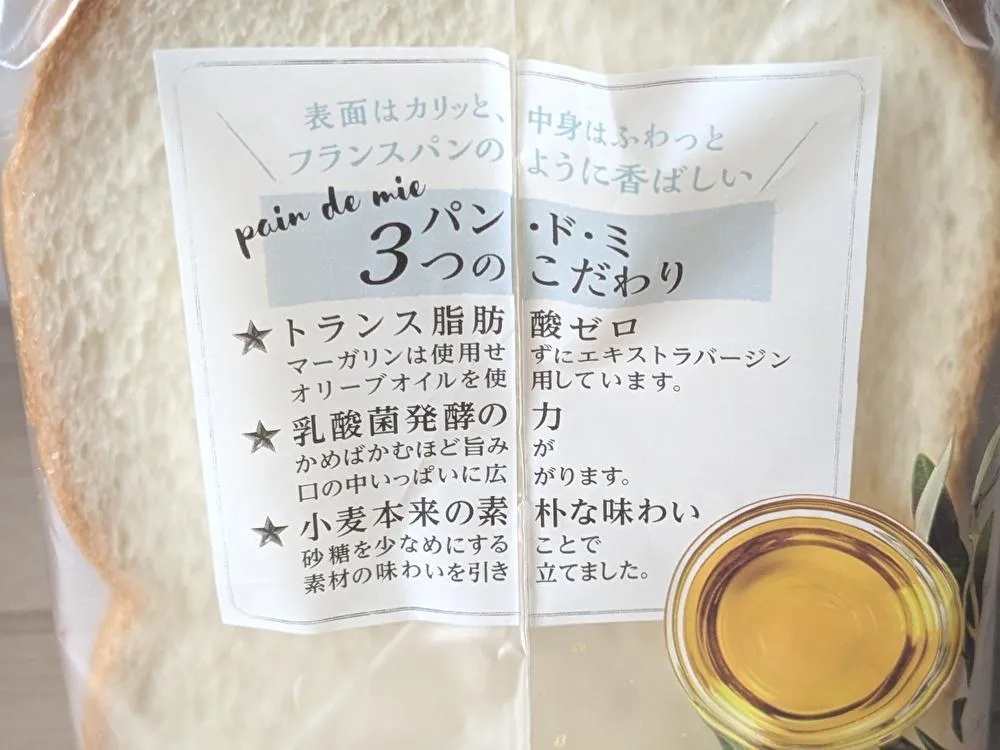 表面はカリッと、中身はふわっと
フランスパンのように香ばしい
pain de mie
パン・ド・ミ
3つのこだわり
トランス脂肪酸ゼロ
マーガリンは使用せずにエキストラバージン
オリーブオイルを使用しています。
乳酸菌発酵の力
かめばかむほど旨みが
口の中いっぱいに広がります。
小麦本来の素朴な味わい
砂糖を少なめにすることで
素材の味わいを引き立てました。